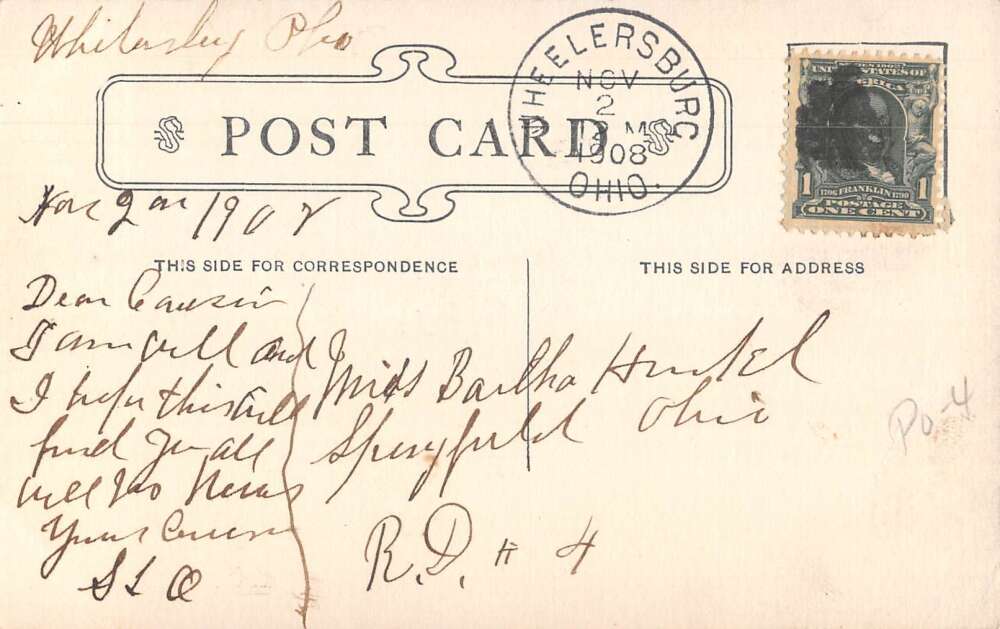 Ohio
WHEELERSBURG
NOV
2
M
1908
OHIO.
POST CARD
UNITED STATES OF
AMERICA
1 1
1706 FRANKLIN 1790
POSTAGE
ONE CENT
Nov 2 1908
THIS SIDE FOR CORRESPONDENCE
THIS SIDE FOR ADDRESS
Dear Cousin
I am well and
I hope this will
find you all
well No News
Your Cousin
S L O
Miss Bartha Hunkel
Springfield Ohio
R.D. # 4
Po-4